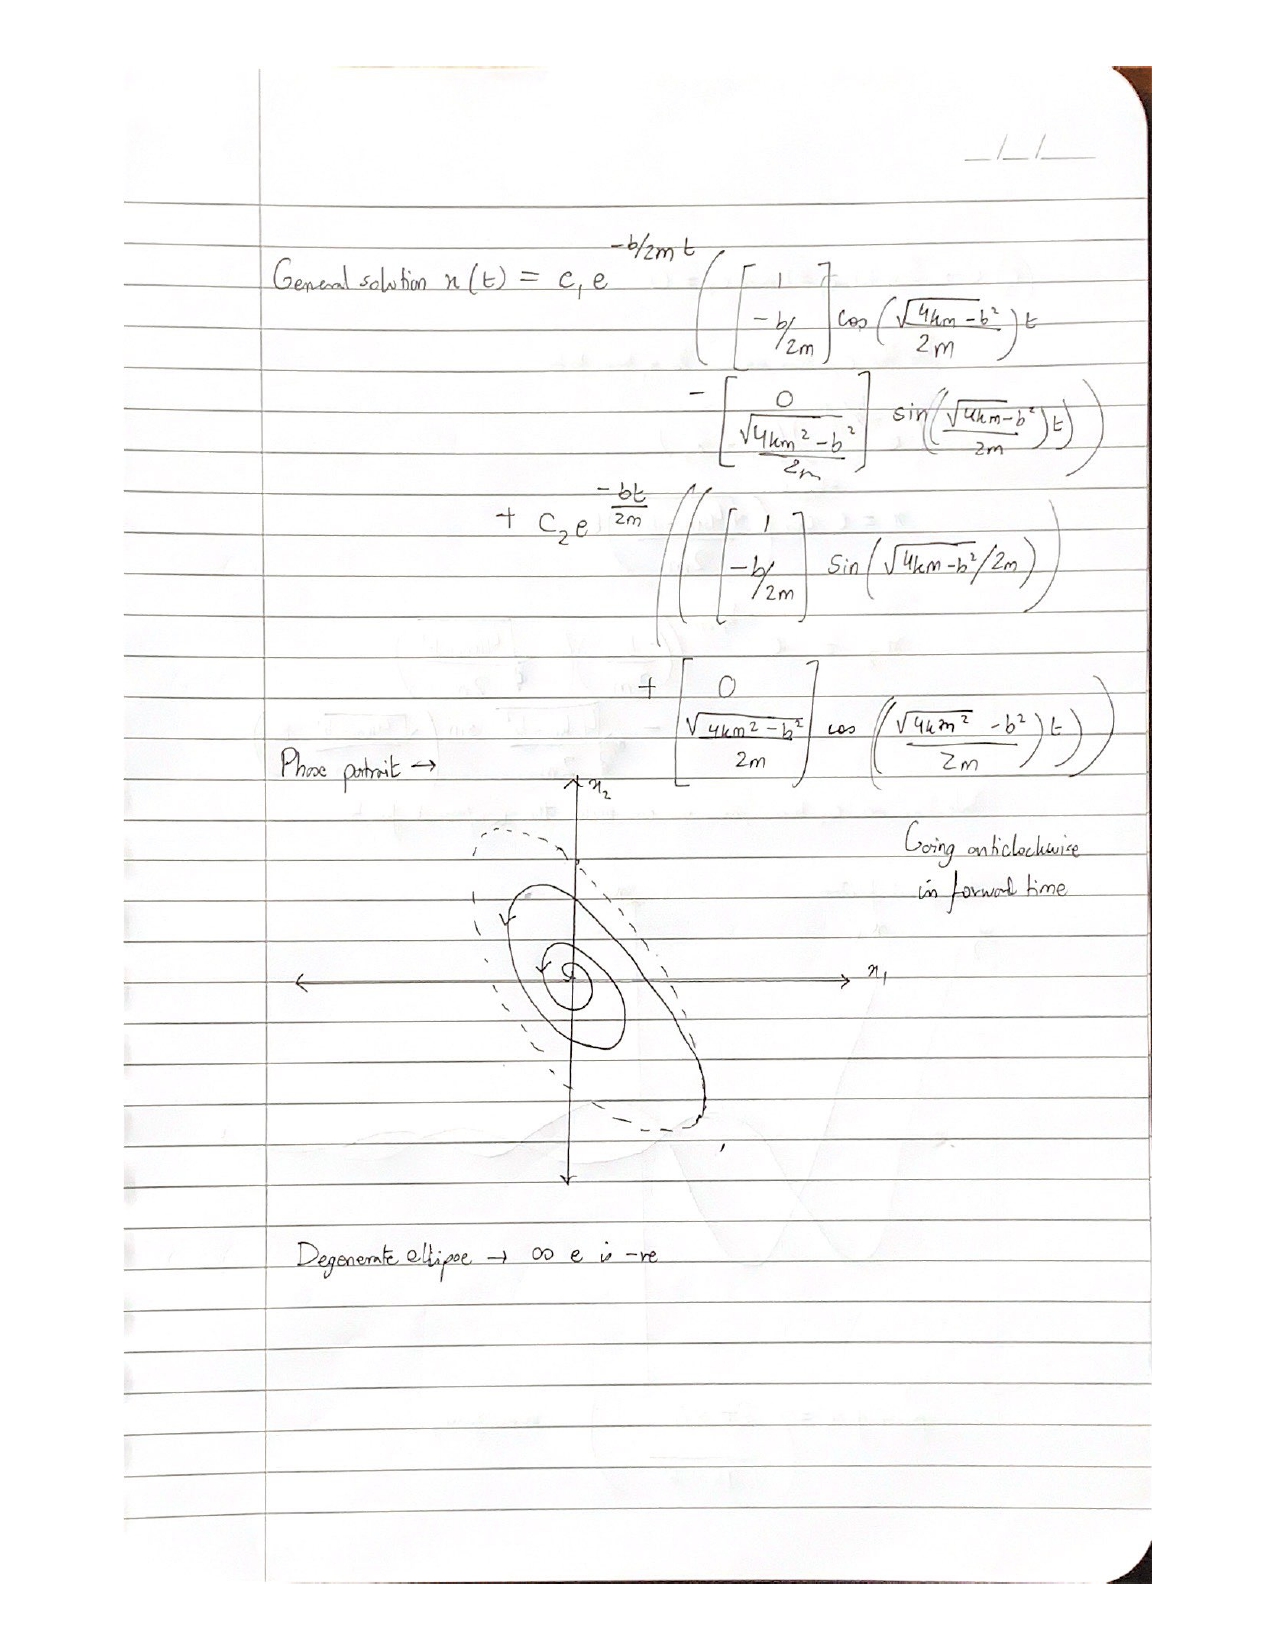 _/_/___
General solution x(t) = c₁ e^(-b/2m t) ( [ 1 ; -b/2m ] cos ( √(4km-b²) / 2m ) t
- [ 0 ; √(4km²-b²) / 2m ] sin ( ( √(4km-b²) / 2m ) t ) )
+ c₂ e^(-bt/2m) ( ( [ 1 ; -b/2m ] sin ( √(4km-b²)/2m ) )
+ [ 0 ; √(4km²-b²) / 2m ] cos ( ( √(4km²-b²) / 2m ) t ) )
Phase portrait →
x₂
Going anticlockwise
in forwad time
x₁
Degenerate ellipse → ∞ e is -ve